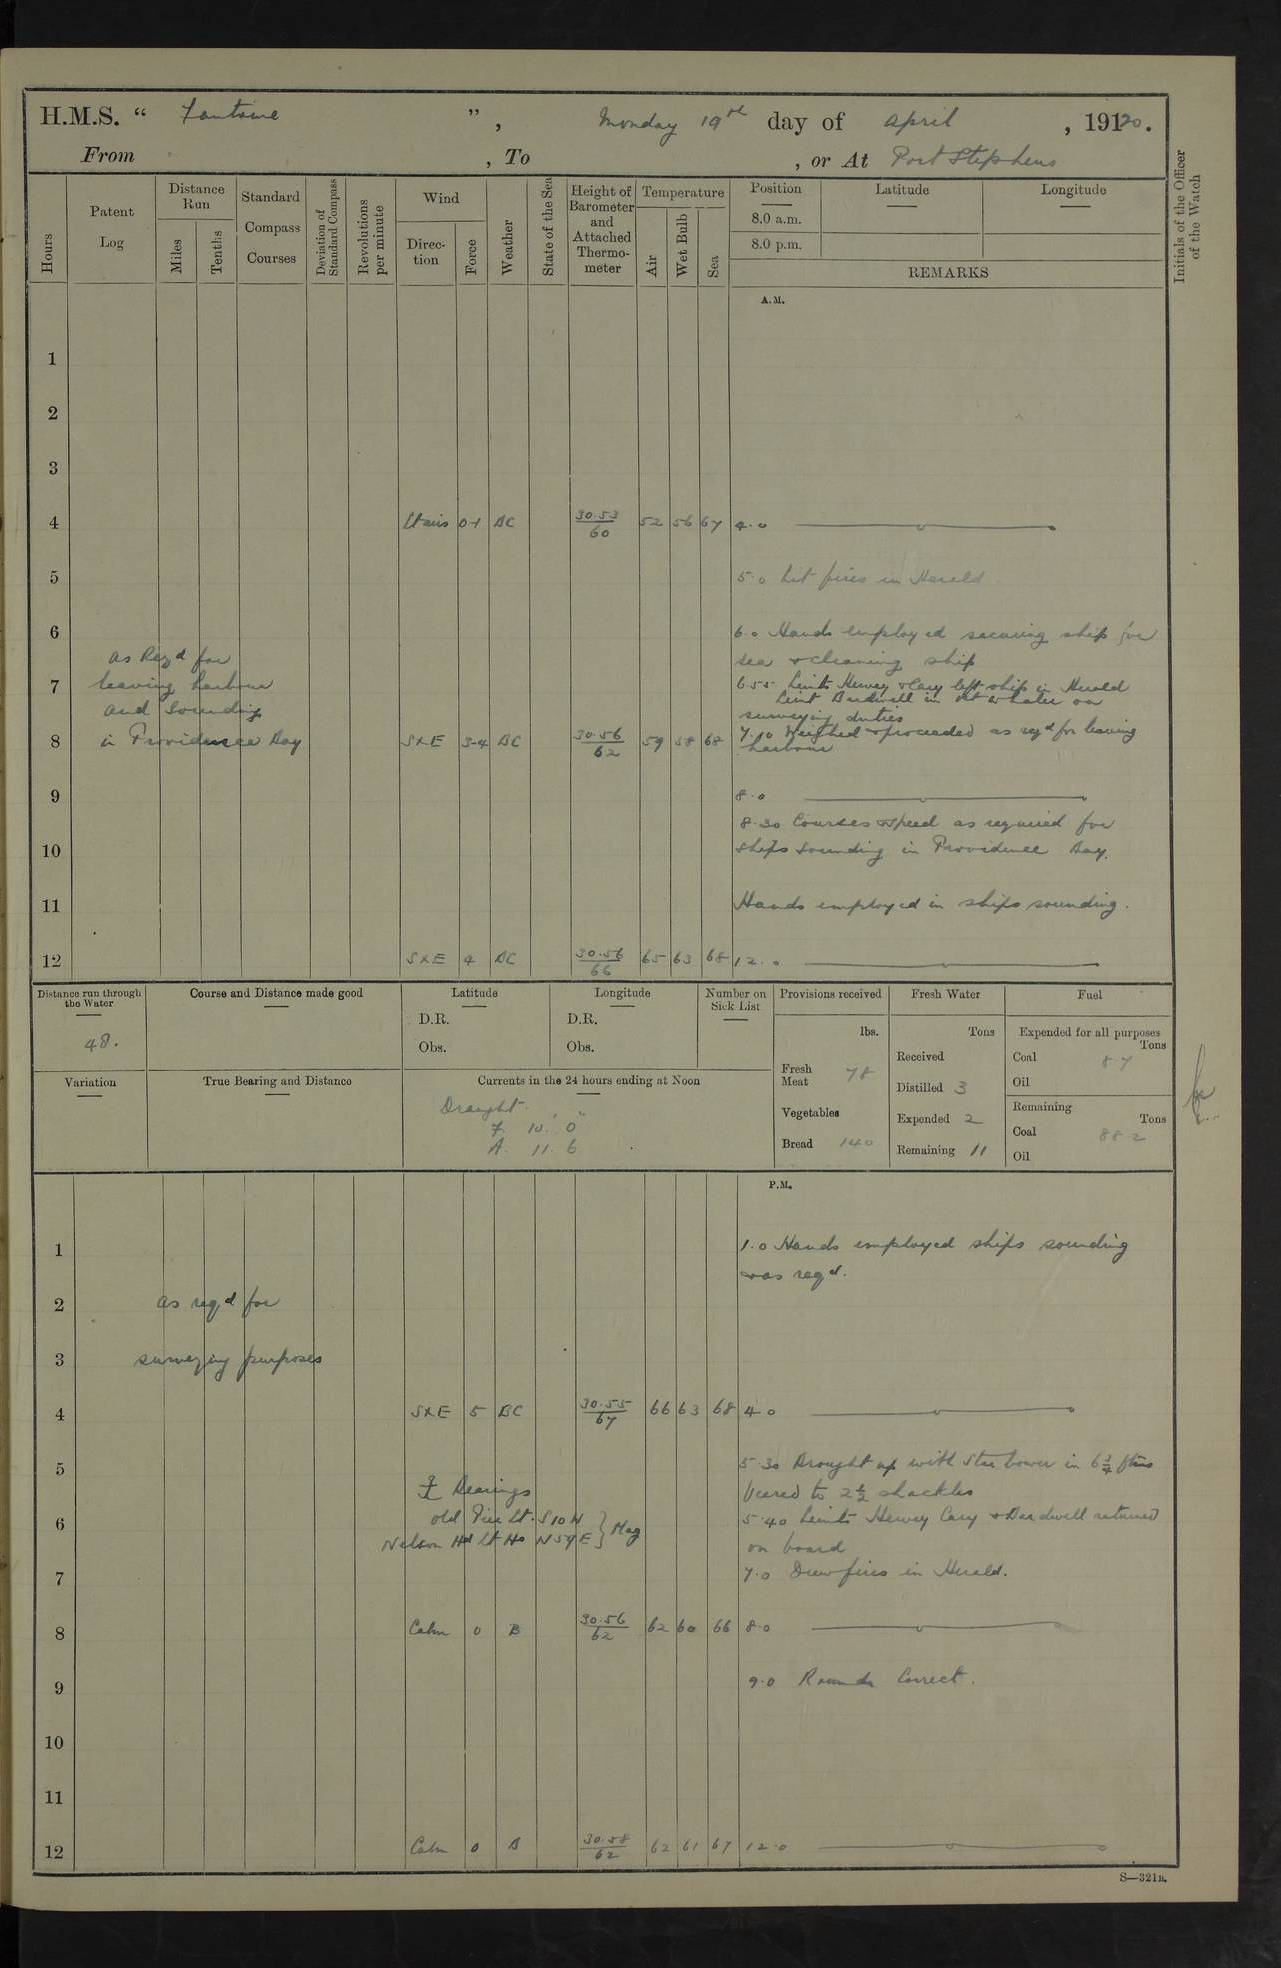 H.M.S. “ Fantome ” , Monday 19th day of April , 19120.
From , To , or At Port Stephens
Hours
Patent Log
Distance Run
Miles
Tenths
Standard Compass Courses
Deviation of Standard Compass
Revolutions per minute
Wind
Direc-tion
Force
Weather
State of the Sea
Height of Barometer and Attached Thermo-meter
Temperature
Air
Wet Bulb
Sea
Position
8.0 a.m.
8.0 p.m.
Latitude
Longitude
REMARKS
Initials of the Officer of the Watch
A.M.
1
2
3
4 0-1 BC 30.53/60 52 56 67 4.0
5 5.0 Lit fires in Herald
6 6.0 Hands employed securing ship for
sea & cleaning ship
as Reqd for
7 leaving harbour 6.55 Lieuts Hervey & Cary left ship in Herald
Lieut Bardwell in whaler on
and Sounding surveying duties
8 in Providence Bay SxE 3-4 BC 30.56/62 59 58 68 7.10 Weighed & proceeded as reqd for leaving
harbour
9 8.0
8.30 Courses & speed as required for
10 ships sounding in Providence Bay.
11 Hands employed in ships sounding.
12 SxE 4 BC 30.56/66 65 63 68 12.0
Distance run through the Water
48.
Course and Distance made good
Latitude
D.R.
Obs.
Longitude
D.R.
Obs.
Number on Sick List
Provisions received
lbs.
Fresh Meat 78
Vegetables
Bread 140
Fresh Water
Tons
Received
Distilled 3
Expended 2
Remaining 11
Fuel
Expended for all purposes
Tons
Coal 8.7
Oil
Remaining
Tons
Coal 88.2
Oil
Variation
True Bearing and Distance
Currents in the 24 hours ending at Noon
Draught
F. 10. 0"
A. 11. 6
P.M.
1 1.0 Hands employed ships sounding
& as reqd.
2 as reqd for
3 surveying purposes
4 SxE 5 BC 30.55/67 66 63 68 4.0
5 5.30 Brought up with Star bower in 6 3/4 fms
Bearings Veered to 2 1/2 shackles
6 old Pier Lt. S 10 W 5.40 Lieuts Hervey Cary & Bardwell returned
Nelson Hd Lt Ho N 59 E } Mag on board
7 7.0 Drew fires in Herald.
8 Calm 0 B 30.56/62 62 60 66 8.0
9 9.0 Rounds Correct.
10
11
12 Calm 0 B 30.58/62 62 61 67 12.0
S—321B.